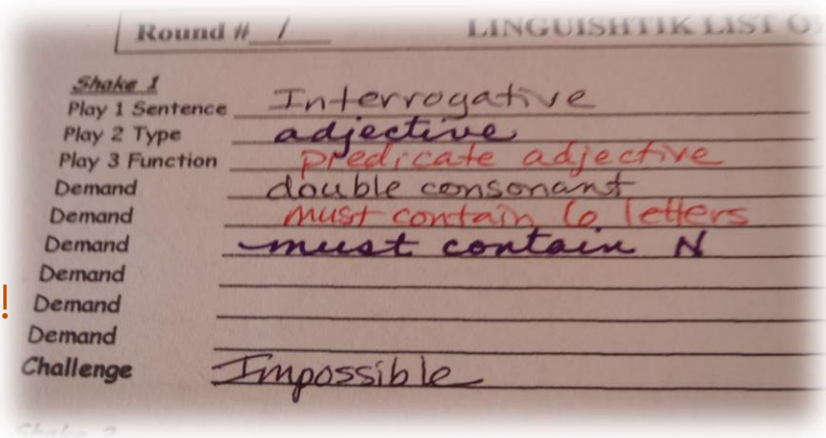 Round # 1 LINGUISHTIK LIST O
Shake 1
Play 1 Sentence Interrogative
Play 2 Type adjective
Play 3 Function predicate adjective
Demand double consonant
Demand must contain 6 letters
Demand must contain N
Demand
! Demand
Demand
Challenge Impossible
Shake 2